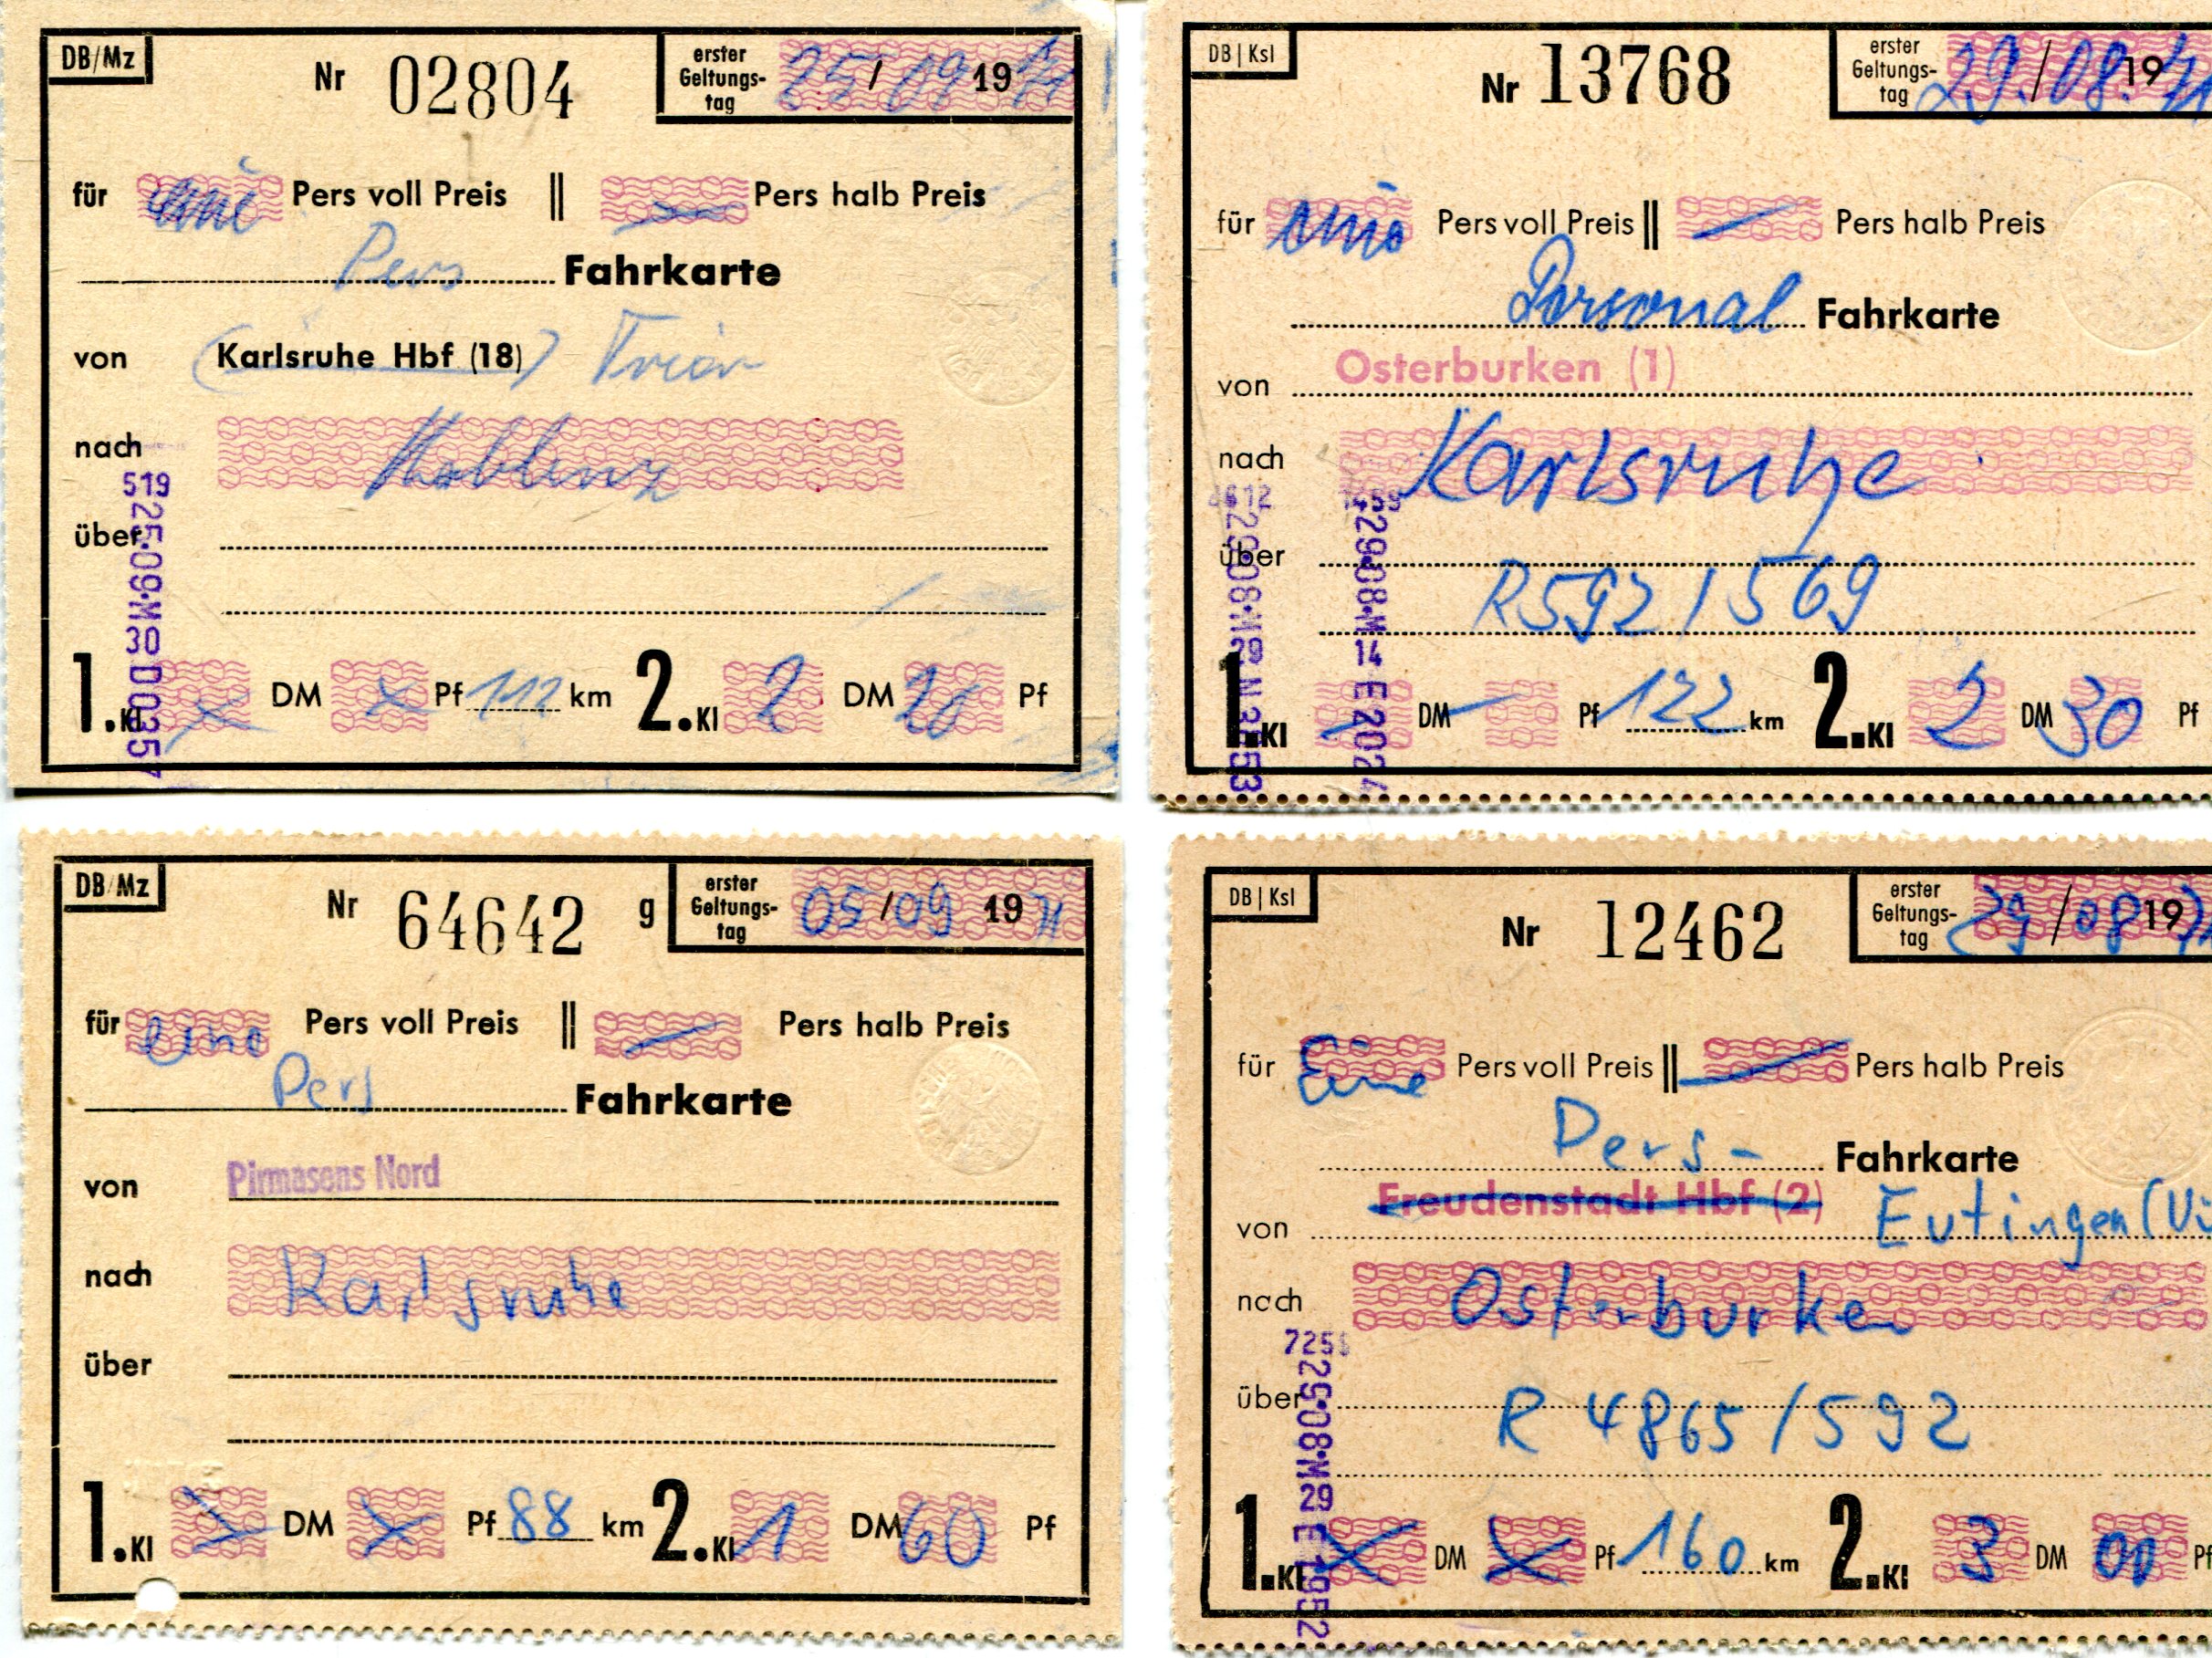 DB/Mz
Nr 02804
erster Geltungs-tag 25/09 19
für eine Pers voll Preis || Pers halb Preis
Pers Fahrkarte
von (Karlsruhe Hbf (18)) Trier
nach Koblenz
519
25·09·M 30 D 035
über
1.Kl DM Pf 112 km 2.Kl 2 DM 20 Pf
DB|Ksl
Nr 13768
erster Geltungs-tag 29./08.19 71
für eine Pers voll Preis || Pers halb Preis
Personal Fahrkarte
von Osterburken (1)
nach Karlsruhe
29·08·M 29
29·08·M 14 E 2024
über R592/569
1.Kl DM Pf 122 km 2.Kl 2 DM 30 Pf
DB/Mz
Nr 64642 g
erster Geltungs-tag 05/09 19 71
für eine Pers voll Preis || Pers halb Preis
Pers Fahrkarte
von Pirmasens Nord
nach Karlsruhe
über
1.Kl DM Pf 88 km 2.Kl 1 DM 60 Pf
DB|Ksl
Nr 12462
erster Geltungs-tag 29/08 19 71
für Eine Pers voll Preis || Pers halb Preis
Pers- Fahrkarte
von Freudenstadt Hbf (2) Eutingen
nach Osterburken
725
29·08·M 29 E 1952
über R 4865/592
1.Kl DM Pf 160 km 2.Kl 3 DM 00 Pf